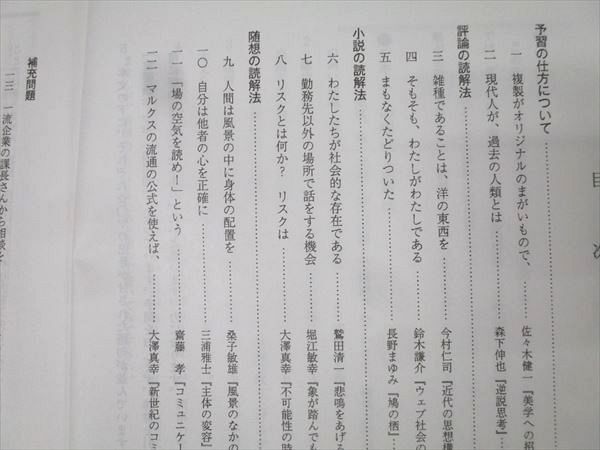 目次
予習の仕方について
一 複製がオリジナルのまがいもので、 佐々木健一『美学への招
二 現代人が、過去の人類とは 森下伸也『逆説思考』
評論の読解法
三 雑種であることは、洋の東西を 今村仁司『近代の思想構
四 そもそも、わたしがわたしである 鈴木謙介『ウェブ社会の
五 まもなくたどりついた 長野まゆみ『鳩の栖』
小説の読解法
六 わたしたちが社会的な存在である 鷲田清一『悲鳴をあげる
七 勤務先以外の場所で話をする機会 堀江敏幸『象が踏んでも
八 リスクとは何か? リスクは 大澤真幸『不可能性の時
随想の読解法
九 人間は風景の中に身体の配置を 桑子敏雄『風景のなかの
一〇 自分は他者の心を正確に 三浦雅士『主体の変容』
一一 「場の空気を読め!」という 齋藤 孝『コミュニケー
一二 マルクスの流通の公式を使えば、 大澤真幸『新世紀のコミ
補充問題
一三 一流企業の課長さんから相談を